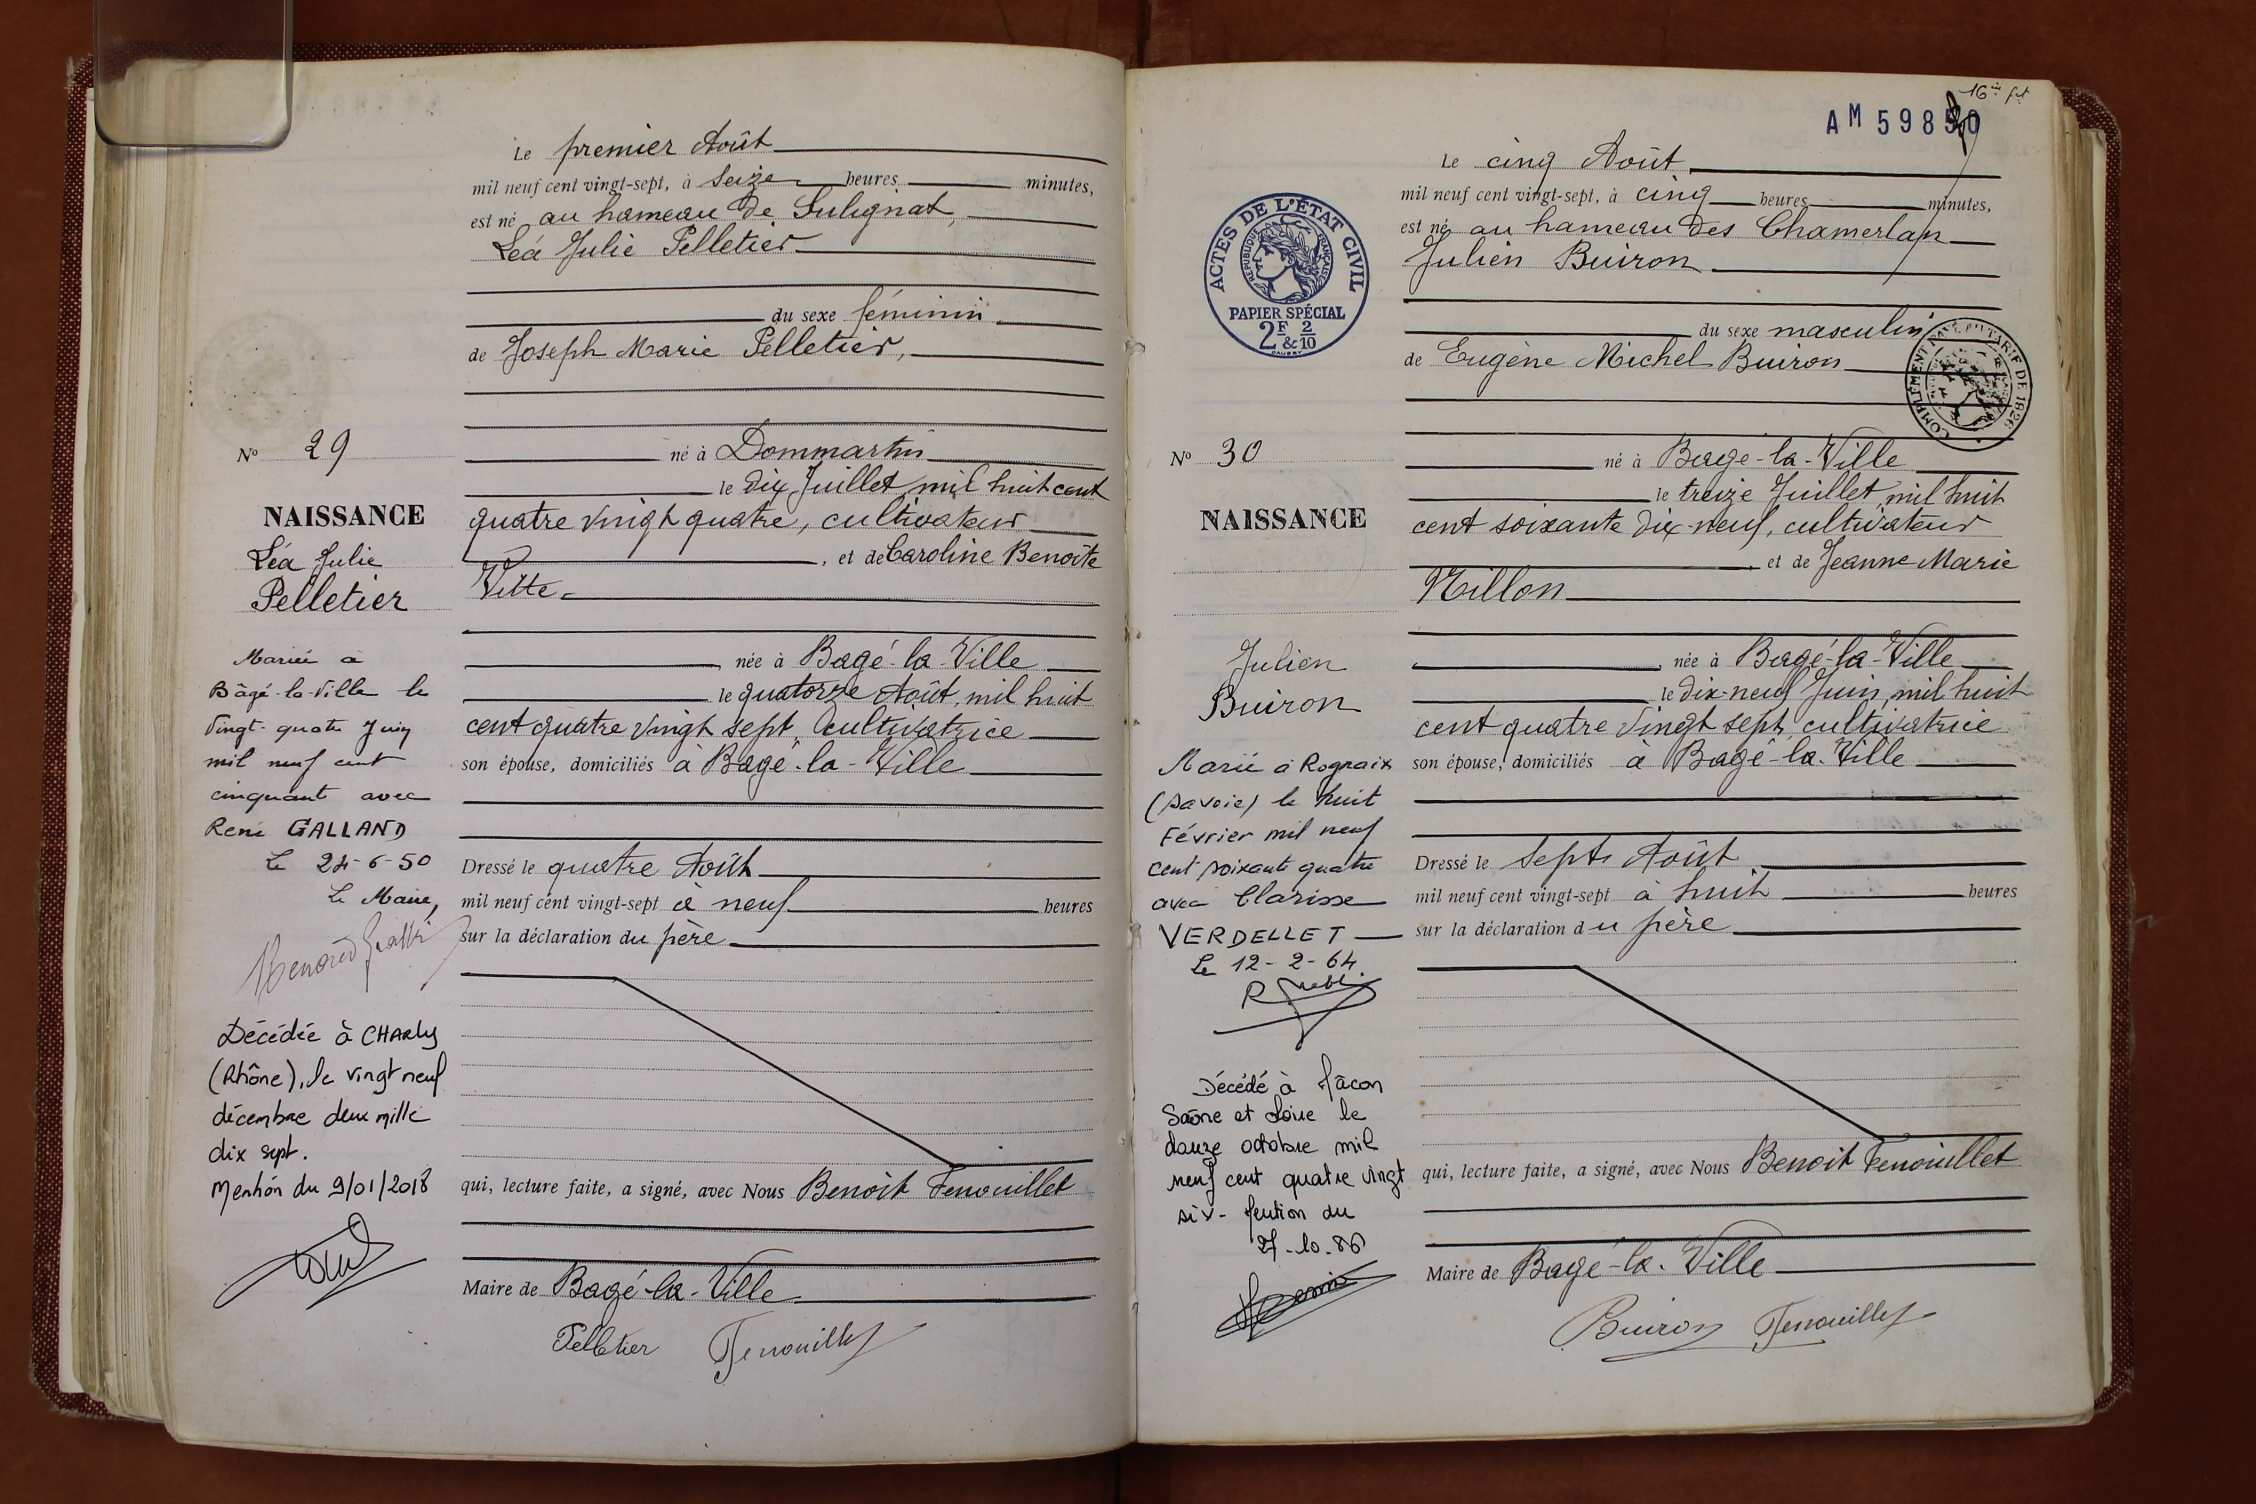 Le premier Août
mil neuf cent vingt-sept, à seize heures minutes,
est né au hameau de Sulignat,
Léa Julie Pelletier
du sexe féminin
de Joseph Marie Pelletier,
né à Dommartin
le dix Juillet mil huit cent
quatre vingt quatre, cultivateur
, et de Caroline Benoîte
Vitte
née à Bagé-la-Ville
le quatorze Août, mil huit
cent quatre vingt sept, cultivatrice
son épouse, domiciliés à Bagé-la-Ville
Dressé le quatre Août
mil neuf cent vingt-sept à neuf heures
sur la déclaration du père
qui, lecture faite, a signé, avec Nous Benoit Fenouillet
Maire de Bagé-la-Ville
Pelletier Fenouillet
No 29
NAISSANCE
Léa Julie
Pelletier
Mariée à
Bâgé-la-Ville le
Vingt-quatre Juin
mil neuf cent
cinquante avec
René GALLAND
Le 24-6-50
Le Maire,
Décédée à CHARLY
(Rhône), le vingt neuf
décembre deux mille
dix sept.
Mention du 9/01/2018
16
AM 59850
Le cinq Août
mil neuf cent vingt-sept, à cinq heures minutes,
est né au hameau des Chamerlan
Julien Buiron
du sexe masculin
de Eugène Michel Buiron
né à Bagé-la-Ville
le treize Juillet mil huit
cent soixante dix-neuf, cultivateur
, et de Jeanne-Marie
Nillon
née à Bagé-la-Ville
le dix-neuf Juin, mil huit
cent quatre vingt sept, cultivatrice
son épouse, domiciliés à Bagé-la-Ville
Dressé le sept Août
mil neuf cent vingt-sept à huit heures
sur la déclaration du père
qui, lecture faite, a signé, avec Nous Benoit Fenouillet
Maire de Bagé-la-Ville
Buiron Fenouillet
ACTES DE L'ÉTAT CIVIL
RÉPUBLIQUE FRANÇAISE
PAPIER SPÉCIAL
2F & 2/10
COMPLÉMENT TARIF DE 1926
No 30
NAISSANCE
Julien
Buiron
Marié à Rognaix
(Savoie) le huit
Février mil neuf
cent soixante quatre
avec Clarisse
VERDELLET
Le 12-2-64
Décédé à Mâcon
Saône et Loire le
douze octobre mil
neuf cent quatre vingt
six - Mention du
27-10-86